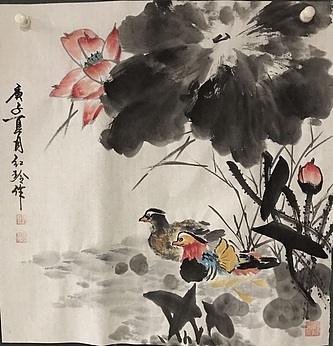 庚子夏月红玲作